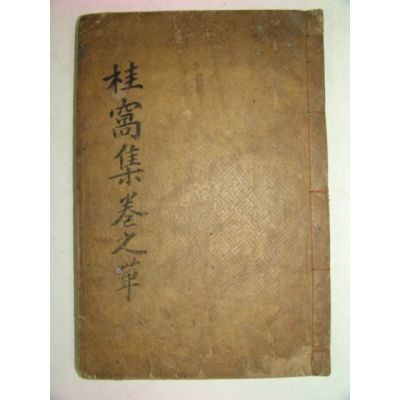 桂窩集卷之單